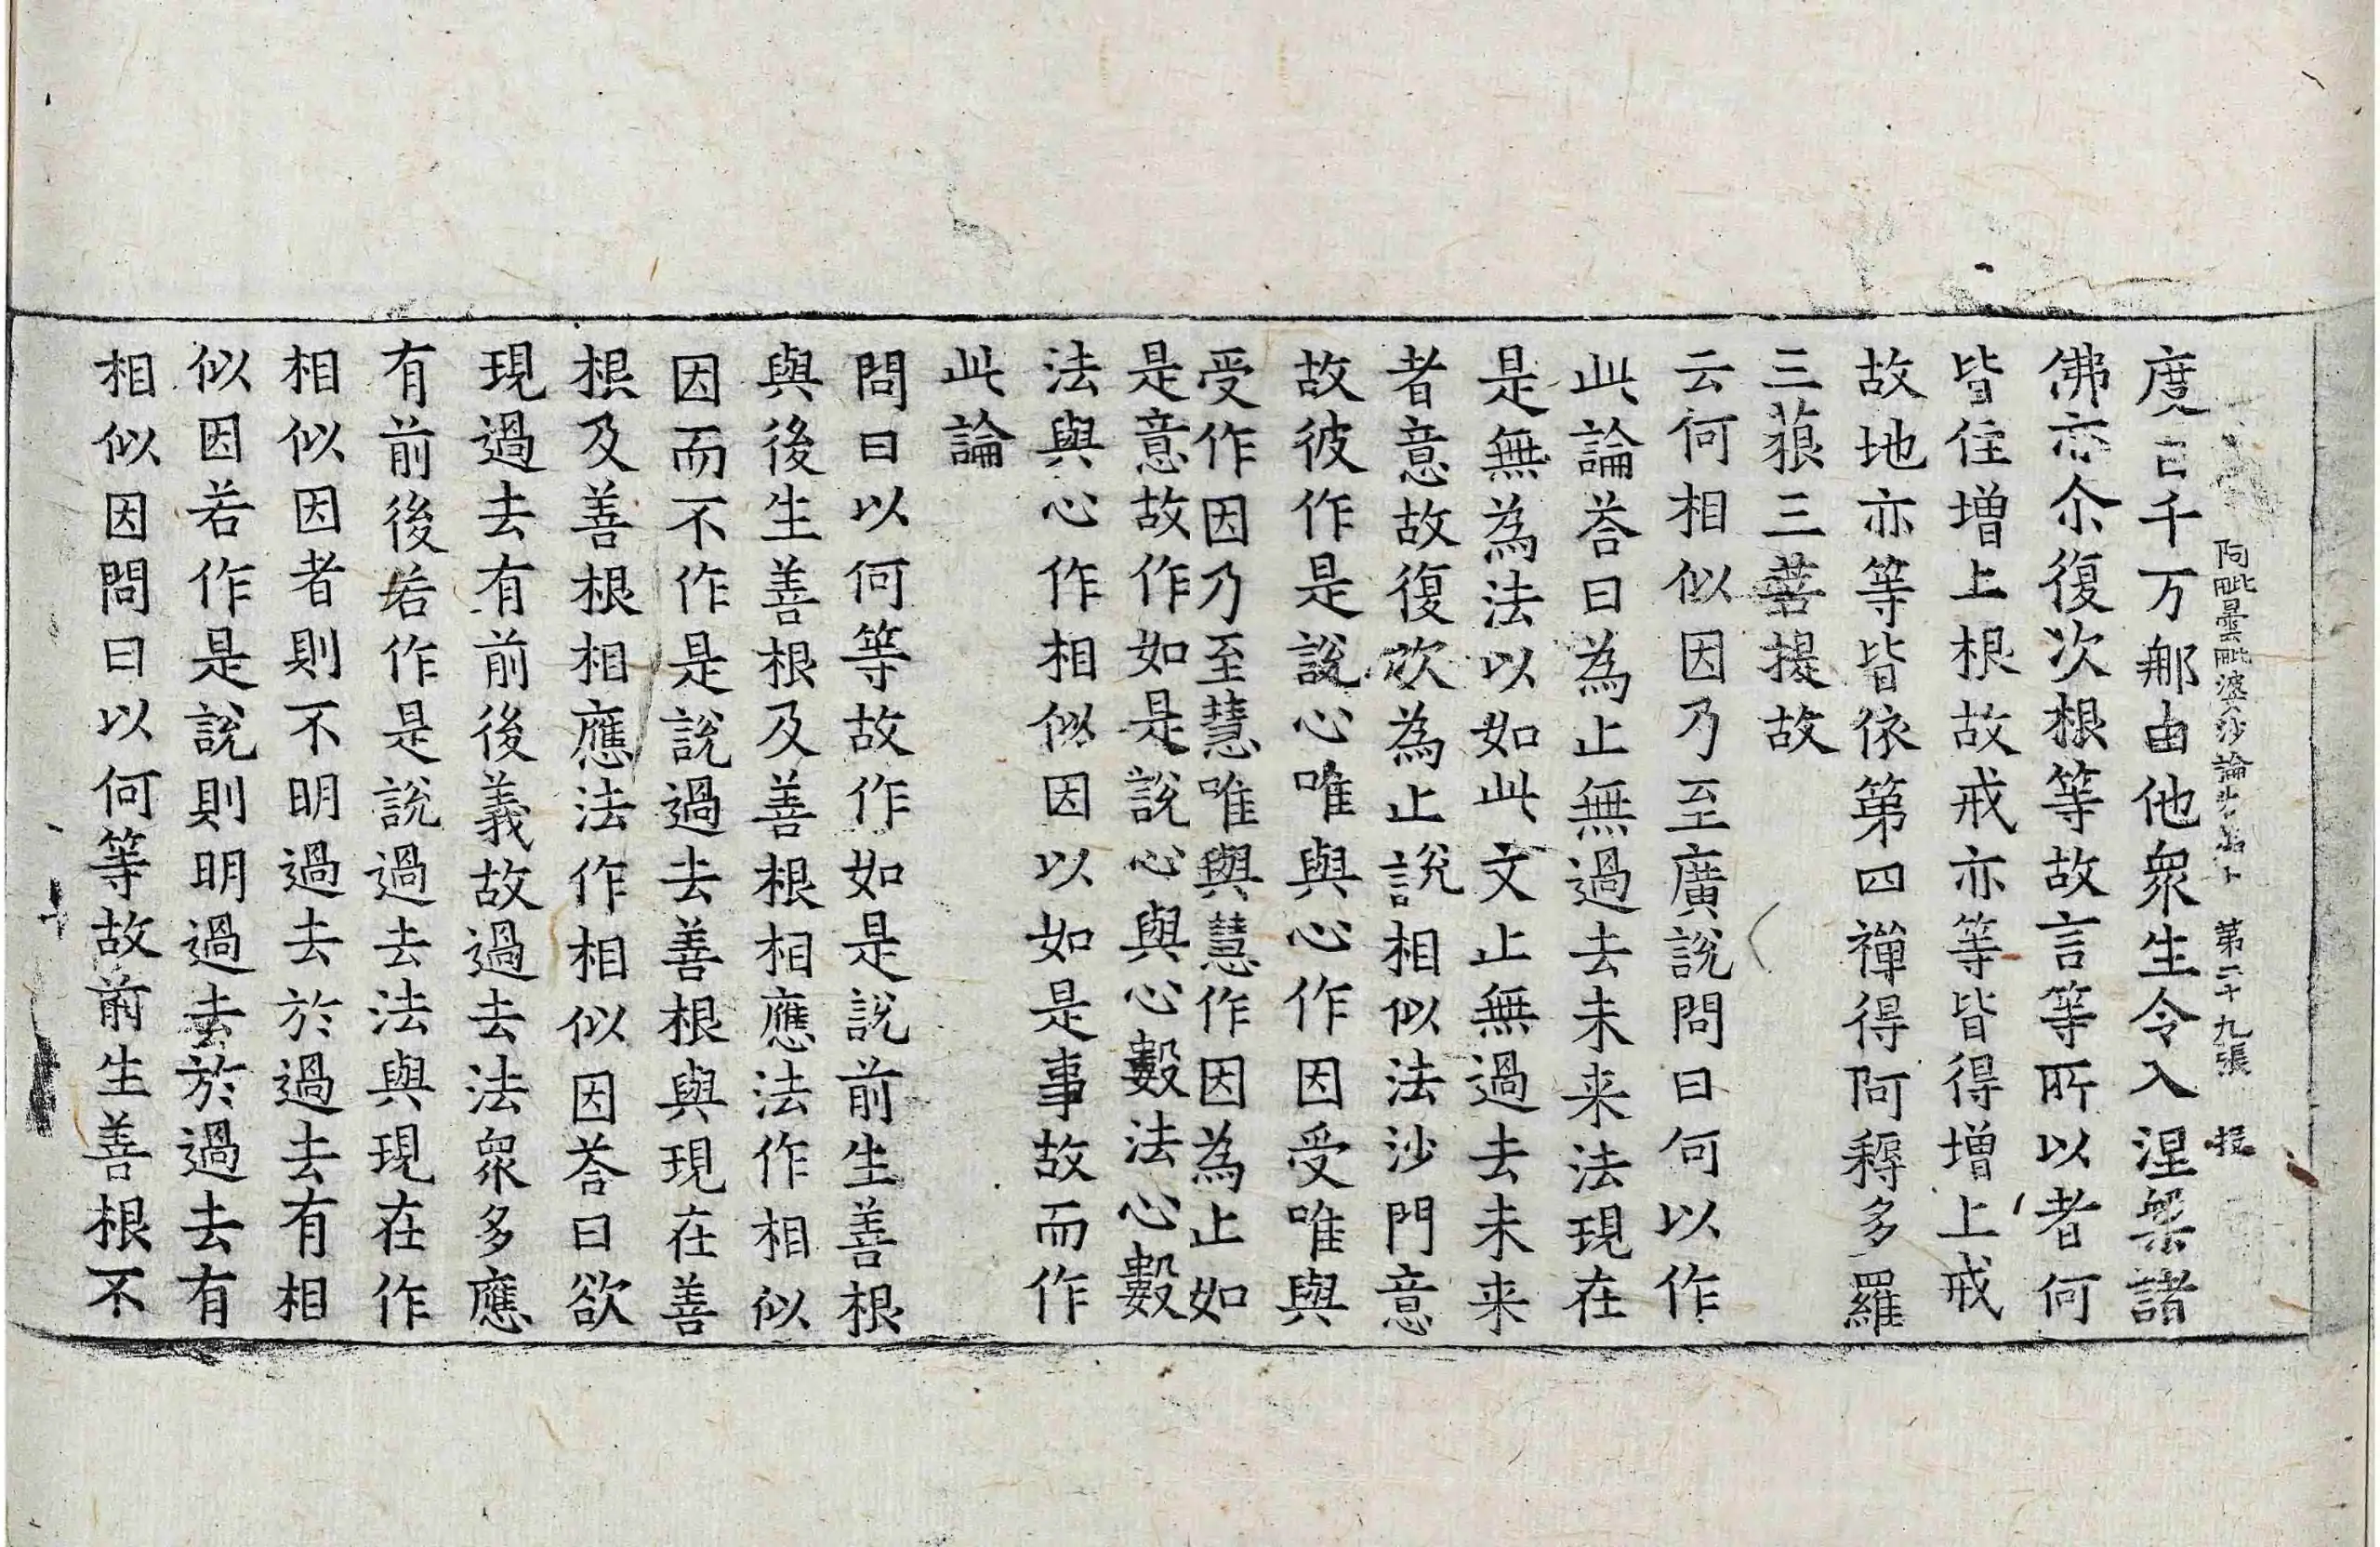 阿毗曇毗婆沙論 第二十九張
度百千万那由他衆生令入涅槃諸
佛亦尒復次根等故言等所以者何
皆住增上根故戒亦等皆得增上戒
故地亦等皆依第四禪得阿耨多羅
三藐三菩提故
云何相似因乃至廣說問曰何以作
此論荅曰為止無過去未来法現在
是無為法以如此文止無過去未来
者意故復次為止說相似法沙門意
故彼作是說心唯與心作因受唯與
受作因乃至慧唯與慧作因為止如
是意故作如是說心與心數法心數
法與心作相似因以如是事故而作
此論
問曰以何等故作如是說前生善根
與後生善根及善根相應法作相似
因而不作是說過去善根與現在善
根及善根相應法作相似因荅曰欲
現過去有前後義故過去法衆多應
有前後若作是說過去法與現在作
相似因者則不明過去於過去有相
似因若作是說則明過去於過去有
相似因問曰以何等故前生善根不